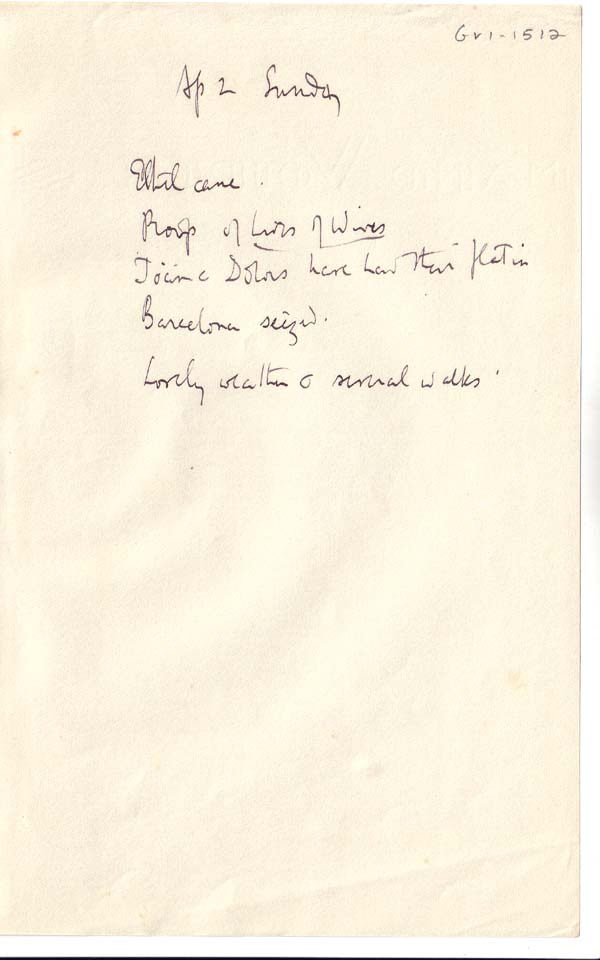 Gv1-1512
Ap 2 Sunday
Ethel came.
Proofs of Lives of Wives
Joan & Dolors have had their flat in
Barcelona seized.
Lovely weather & several walks.